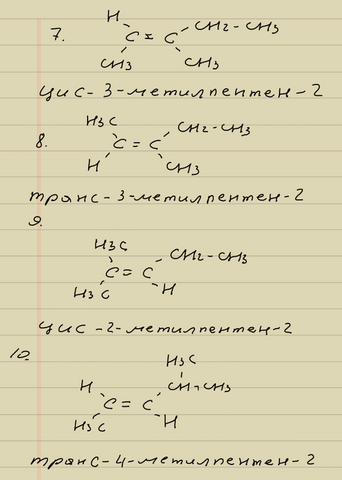 7.
H CH2-CH3
C = C
CH3 CH3
цис-3-метилпентен-2
8.
H3C CH2-CH3
C = C
H CH3
транс-3-метилпентен-2
9.
H3C CH2-CH3
C = C
H3C H
цис-2-метилпентен-2
10.
H3C
H CH-CH3
C = C
H3C H
транс-4-метилпентен-2